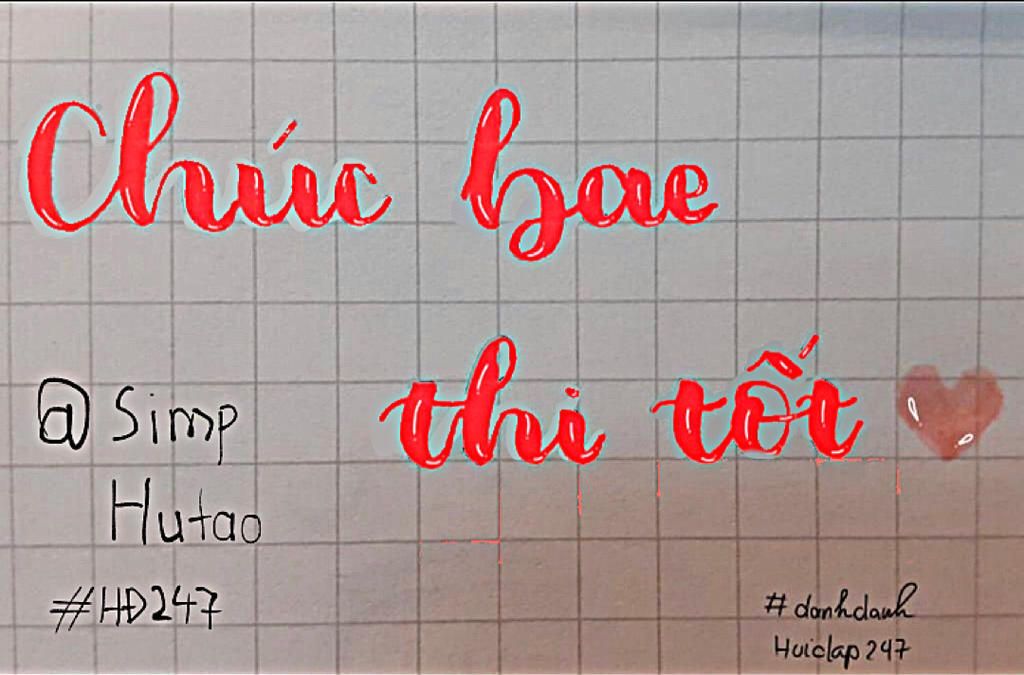 Chúc bae
thi tốt
@ Simp
Hutao
#HĐ247
#danhdanh
Huiclap247